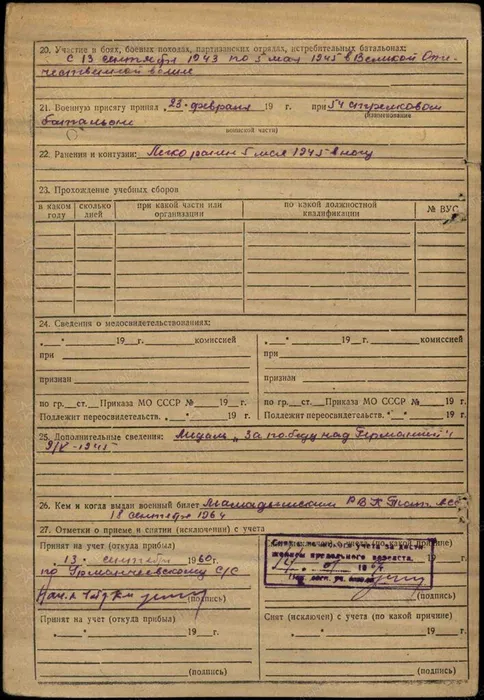 20. Участие в боях, боевых походах, партизанских отрядах, истребительных батальонах:
с 13 сентября 1943 по 5 мая 1945 в Великой Оте-
чественной войне
21. Военную присягу принял „23" февраля 19 г. при 54 стрелковом
(наименование
батальоне
воинской части)
22. Ранения и контузии: Легко ранен 5 мая 1945 в ногу
23. Прохождение учебных сборов
в каком году | сколько дней | при какой части или организации | по какой должностной квалификации | № ВУС
24. Сведения о медосвидетельствованиях:
„ " 19 г. комиссией „ " 19 г. комиссией
при при
признан признан
по гр. ст. Приказа МО СССР № 19 г. по гр. ст. Приказа МО СССР № 19 г.
Подлежит переосвидетельств. „ " 19 г. Подлежит переосвидетельств. „ " 19 г.
25. Дополнительные сведения: Медаль „За победу над Германией"
9/V-1945
26. Кем и когда выдан военный билет Мамадышским РВК Тат. АССР
18 сентября 1964
27. Отметки о приеме и снятии (исключении) с учета
Принят на учет (откуда прибыл) с учета (по какой причине)
Снят с воинского учета за дости-
жением предельного возраста.
„13" сентября 1960 г.
по С/С
Нач.
(подпись) (подпись)
Принят на учет (откуда прибыл) Снят (исключен) с учета (по какой причине)
„ " 19 г. „ " 19 г.
(подпись) (подпись)